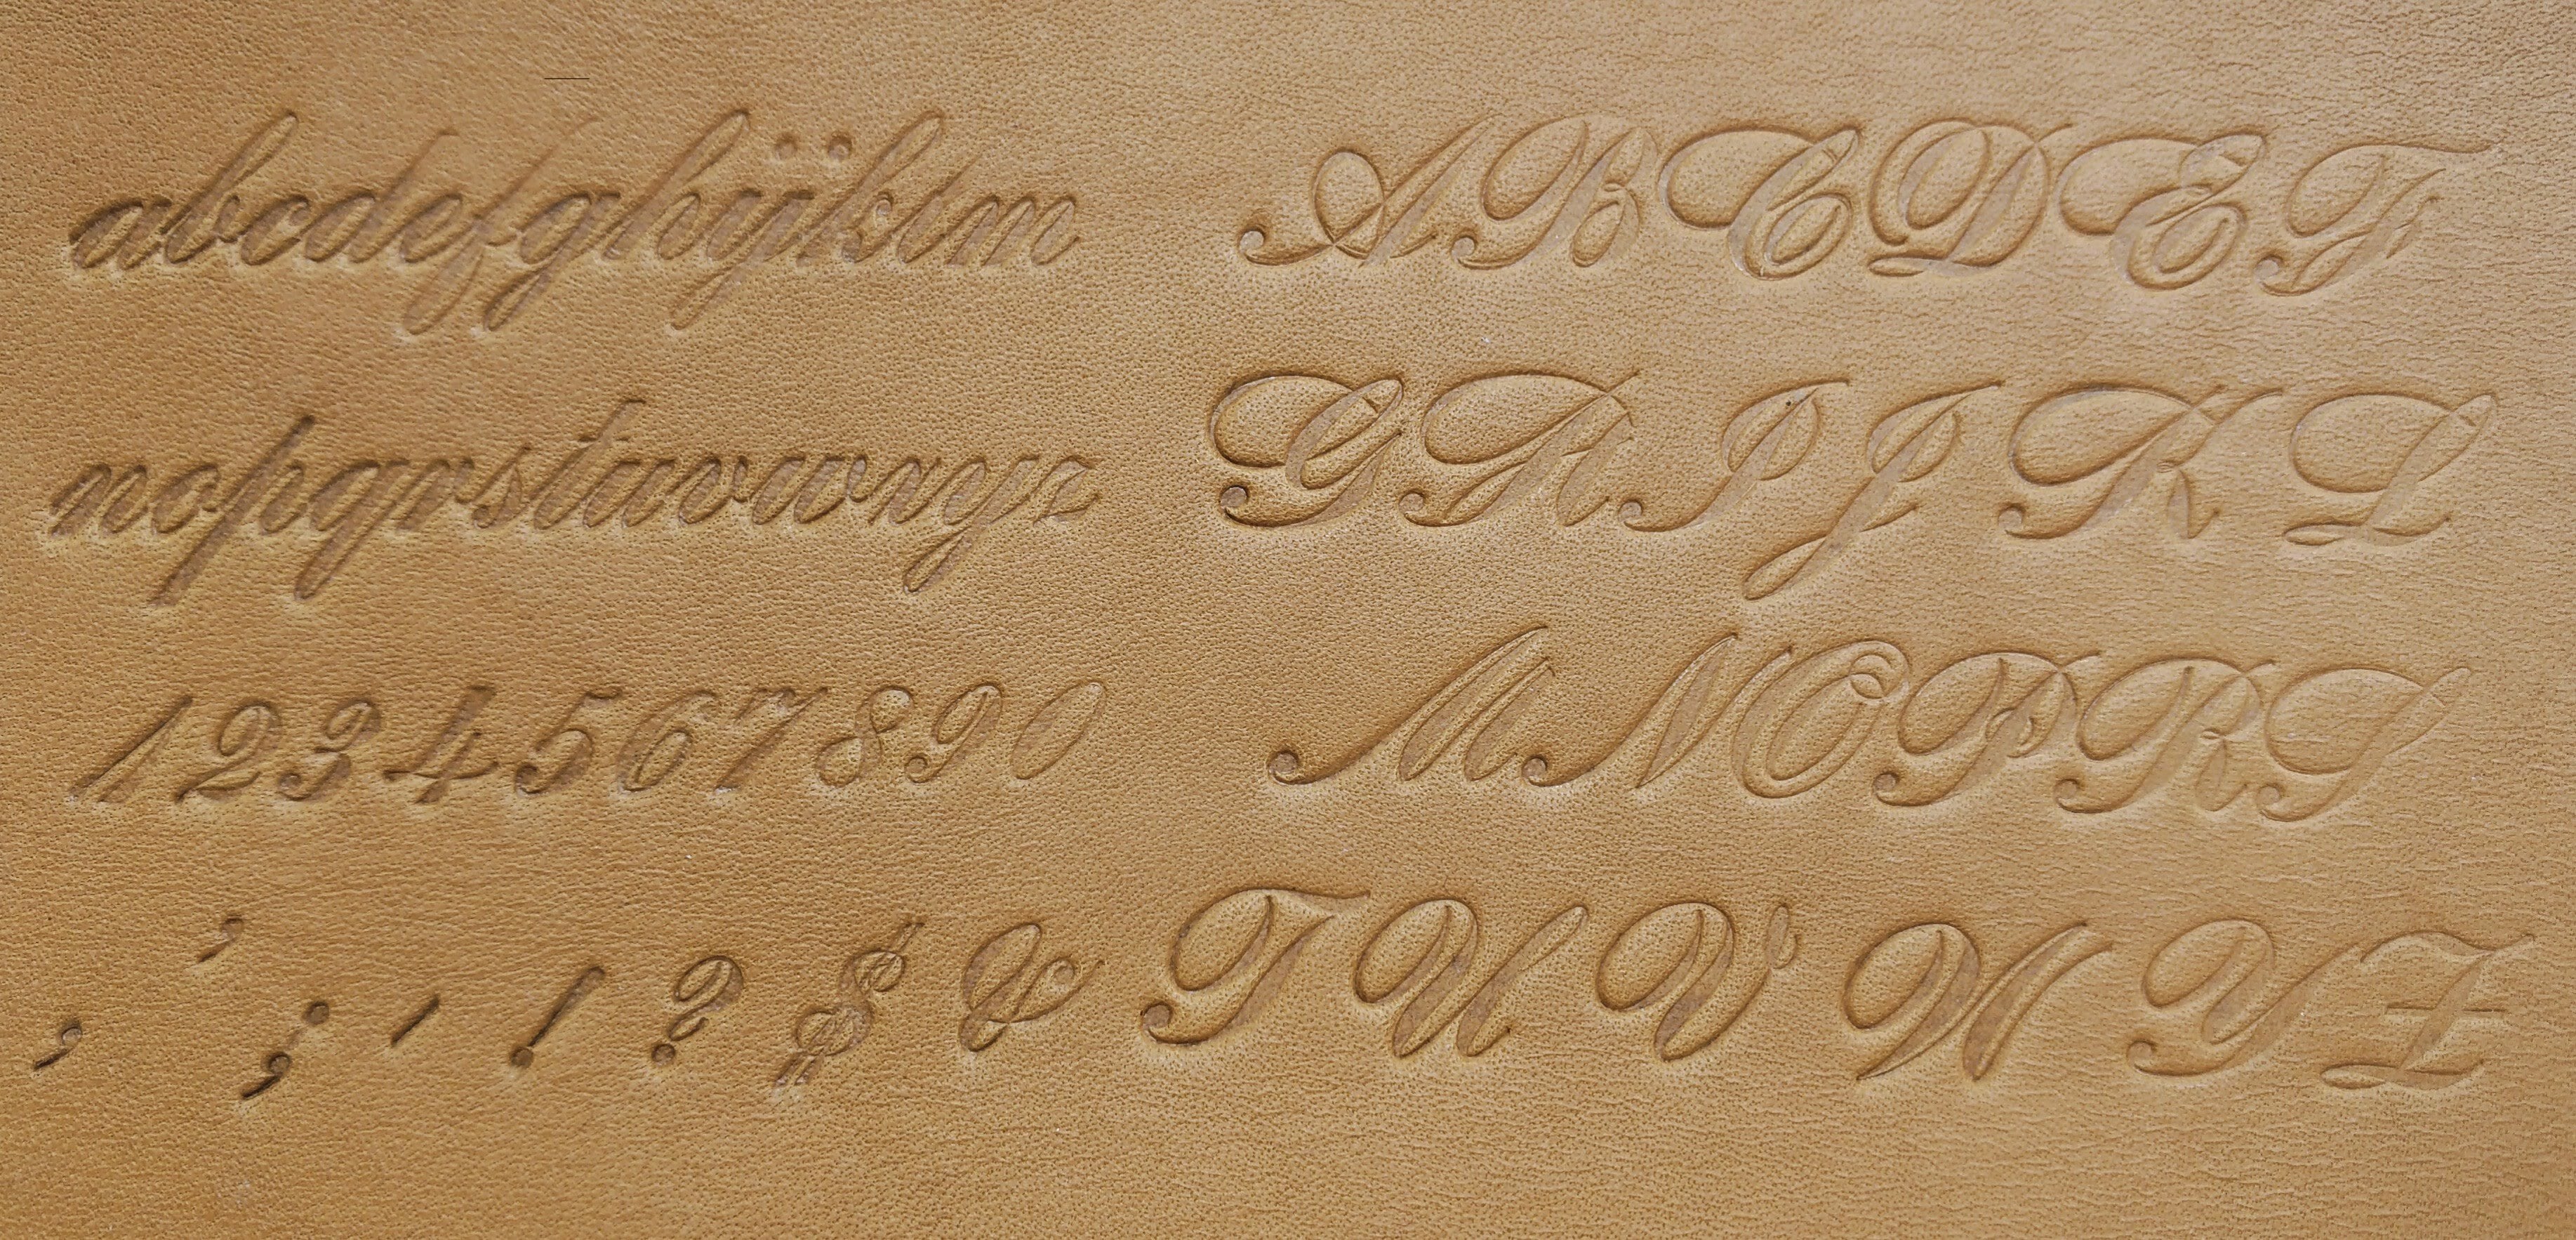 abcdefghijklm
nopqrstuvwxyz
1234567890
, ' ; - ! ? $ &
ABCDEF
GHIJKL
MNOPRS
TUVWYZ